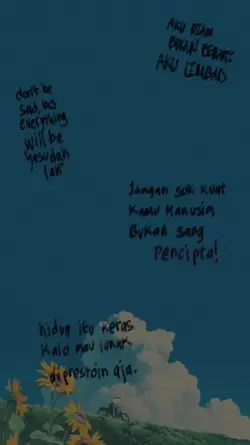 AKU DIAM
BUKAN BERARTI
AKU LIMBAD
don't be
sad, bcs
everything
will be
yasudah
lah
Jangan sok kuat
Kamu Manusia
Bukan sang
Pencipta!
hidup itu keras
Kalo mau lunak
diprestoin aja.